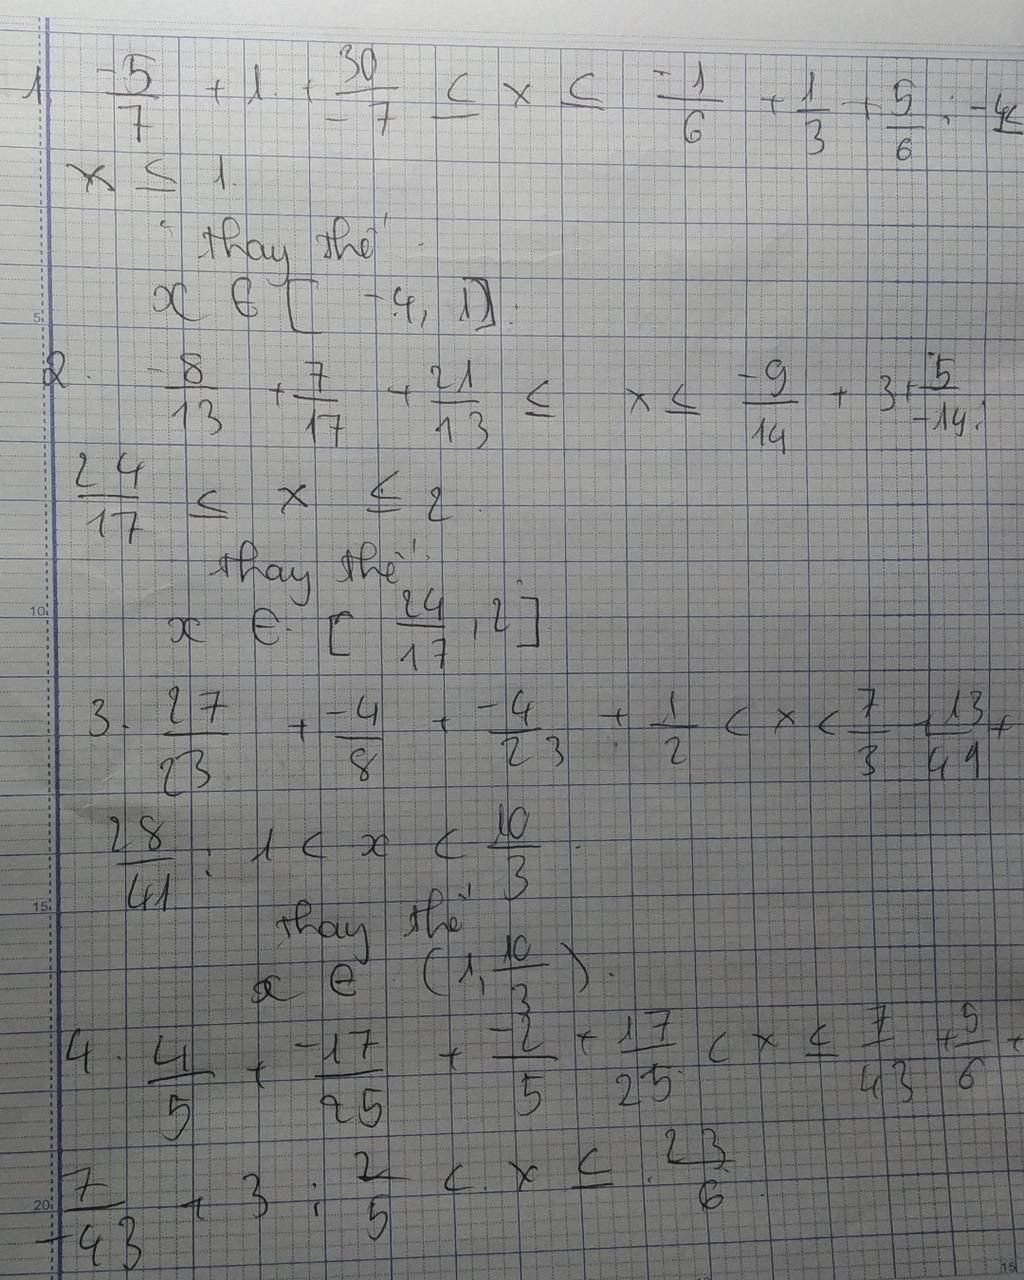 1. -5/7 + 1 + 30/-7 ≤ x ≤ -1/6 + 1/3 + 5/6 ; -4 ≤
x ≤ 1.
thay thế
x ∈ [ -4, 1].
2. -8/13 + 7/17 + 21/13 ≤ x ≤ -9/14 + 3 + 5/-14 ;
24/17 ≤ x ≤ 2.
thay thế
x ∈ [ 24/17 , 2 ]
3. 27/23 + -4/8 + -4/23 + 1/2 < x < 7/3 + 13/41 +
28/41 ; 1 < x < 10/3.
thay thế
x ∈ (1, 10/3).
4. 4/5 + -17/25 + -2/5 + 17/25 < x ≤ 7/43 + 5/6 +
7/-43 + 3 ; 2/5 < x ≤ 23/6
5
10
15
20